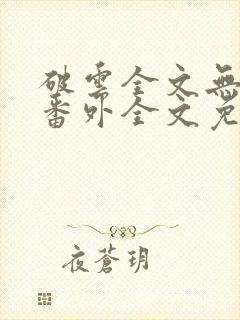 破雲全文無
番外全文免
夜蒼玥